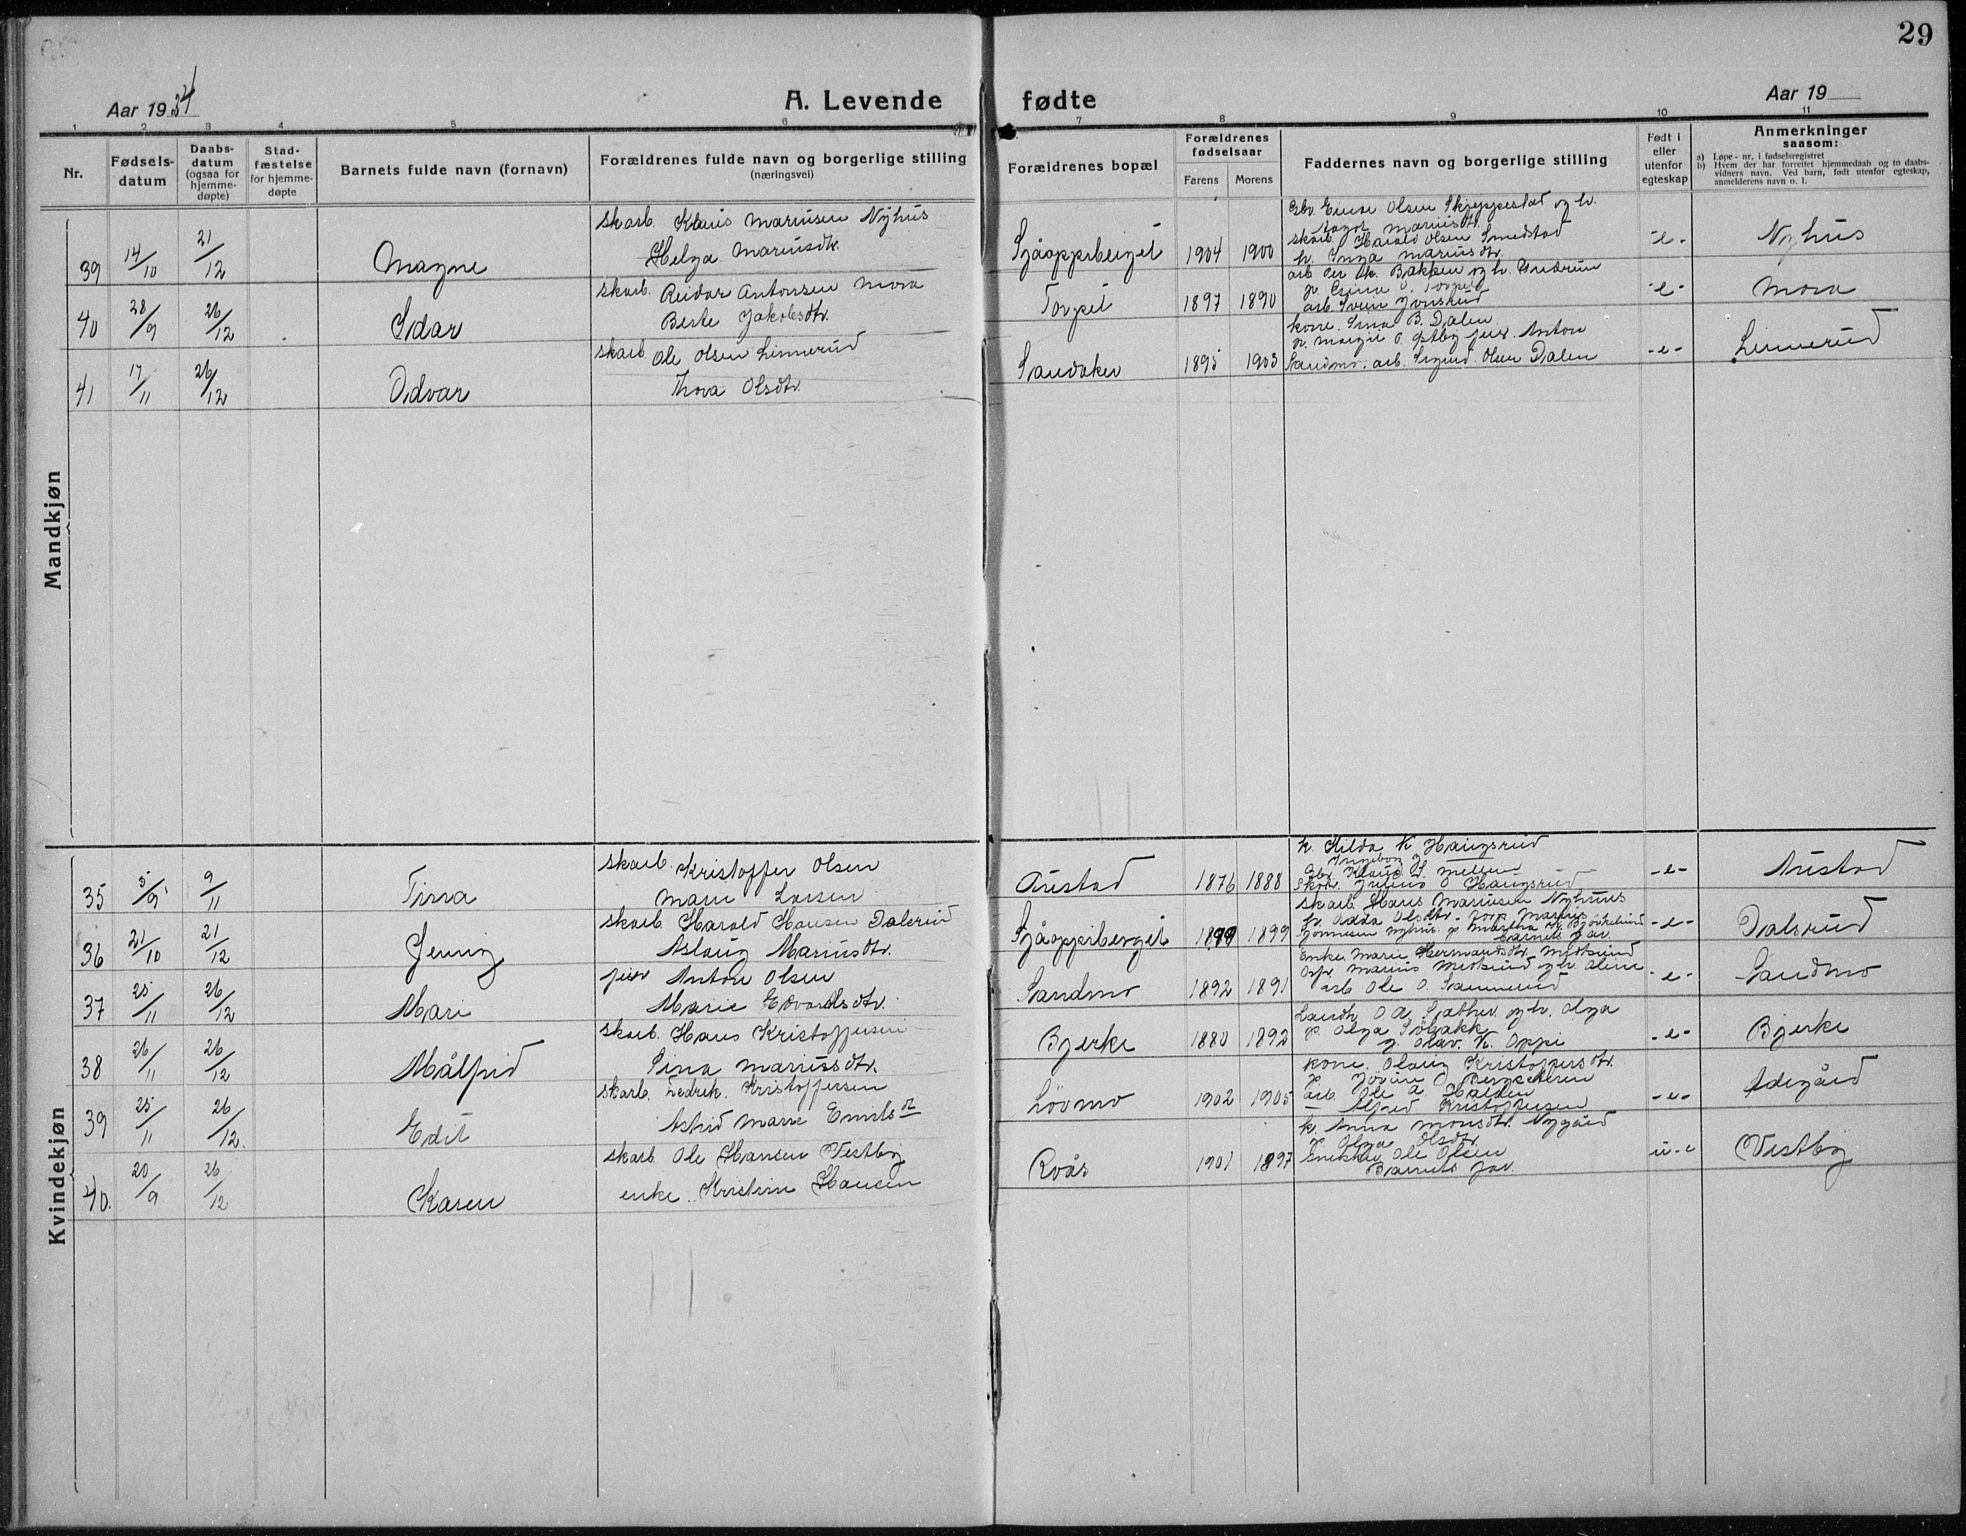 29
Aar 1934
A. Levende fødte
Aar 19
1 2 3 4 5 6 7 8 9 10 11
Nr.
Fødsels-
datum
Daabs-
datum
(ogsaa for
hjemme-
døpte)
Stad-
fæstelse
for hjemme-
døpte
Barnets fulde navn (fornavn)
Forældrenes fulde navn og borgerlige stilling
(næringsvei)
Forældrenes bopæl
Forældrenes
fødselsaar
Farens Morens
Faddernes navn og borgerlige stilling
Født i
eller
utenfor
egteskap
Anmerkninger
saasom:
a) Løpe-nr. i fødselsregistret
b) Hvem der har forrettet hjemmedaab og to daabs-
vidners navn. Ved barn, født utenfor egteskap,
anmelderens navn o. l.
Mandkjøn
39 14/10 21/12 Magne
skarb. Klaus Mariusen Nyhus
Helga Mariusdtr.
Sjåoppiberget 1904 1900
Gbr. Einar Olsen Skjeppestad og h.
Aagot Mariusdtr.
skarb. Harald Olsen Smedstad
h. Inga Mariusdtr.
-e- Nyhus
40 28/9 26/12 Idar
skarb. Reidar Antonsen Mora
Berte Jakobsdtr.
Torpet 1897 1890
Bakken og h. Gudrun
-e- Mora
41 17/11 26/12 Odvar
skarb. Ole Olsen Linnerud
Thora Olsdtr.
Sandaker 1895 1903
kone. Lina B. Dalen
p. Margit O. Østby feier Anton
Sandmo. arb. Sigurd Olsen Dalen
-e- Linnerud
Kvindekjøn
35 5/9 9/11 Tinna
skarb. Kristoffer Olsen
Marie Larsen
Austad 1876 1888
k. Hilda K Haugsrud
Ingeborg
skarb. Julius O Haugsrud
-e- Austad
36 21/10 21/12 Jenny
skarb. Harald Hansen Dalsrud
Aslaug Mariusdtr.
Sjåoppiberget 1899 1899
skarb. Hans Mariusen Nyhus
h. Odda Olsdtr.
Barnets far
-e- Dalsrud
37 25/11 26/12 Mari
feier Anton Olsen
Marie Edvardsdtr.
Sandmo 1892 1891
Enke Marie Hermandsdtr.
arb. Ole O.
-e- Sandmo
38 26/11 26/12 Målfrid
skarb. Hans Kristoffersen
Lina Mariusdtr.
Bjerke 1880 1892
Landh. O A Sæther og h. Olga
p. Olga Solbakk
g. Olav. K. Oppi
-e- Bjerke
39 25/11 26/12. Edit
skarb. Fedrik. Kristoffersen
Astrid Marie Emilsdt
Lövmo 1902 1905
kone. Olaug Kristoffersdtr.
arb. Ole A. Halden
— Alfred Kristoffersen
-e- Adegård
40. 20/9 26/12 Karen
skarb. Ole Hansen Vestby
enke. Kristine Hansen
Kvås 1901 1897
k. Anna Monsdtr. Nygård
p. Olga Olsdtr.
Snekker Ole Olsen
Barnets far.
u-e Vestby